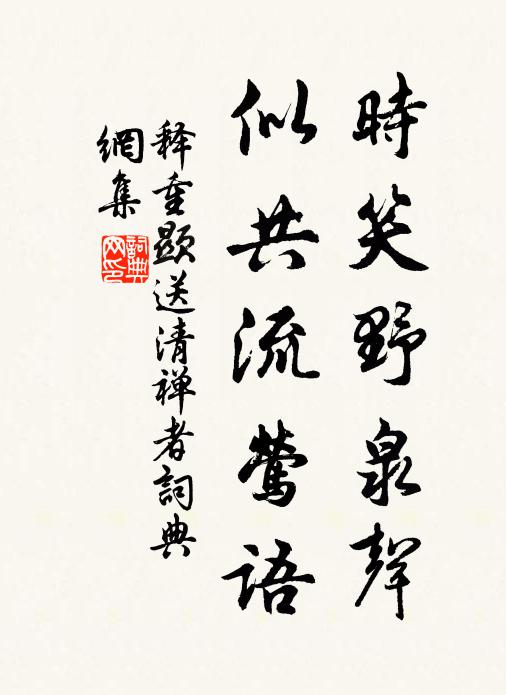 時笑野泉聲
似共流鶯語
释重顯送清禅者詞典
網集
詞典
网印